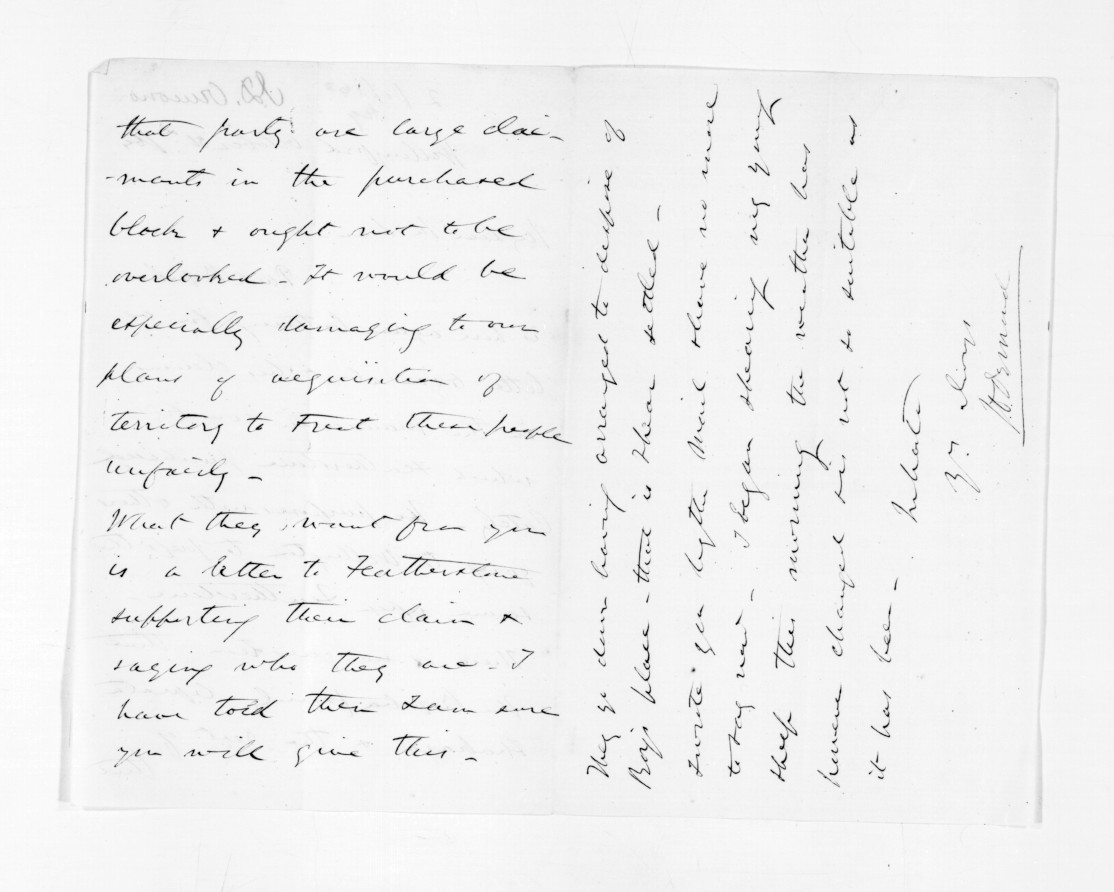 that party are large clai-
-mants in the purchased
block & ought not to be
overlooked - It would be
especially damaging to our
plans of acquisition of
territory to treat these people
unfairly -
What they want from you
is a letter to Featherstone
supporting their claim &
saying who they are - I
have told them I am sure
you will give this -
They go down having arranged to dispose of
Boys place - that is hear settled -
I wrote you by the mail & have no more
to say now - I began shearing my young
sheep this morning the weather has
however changed & is not so suitable as
it has been -
Yrs